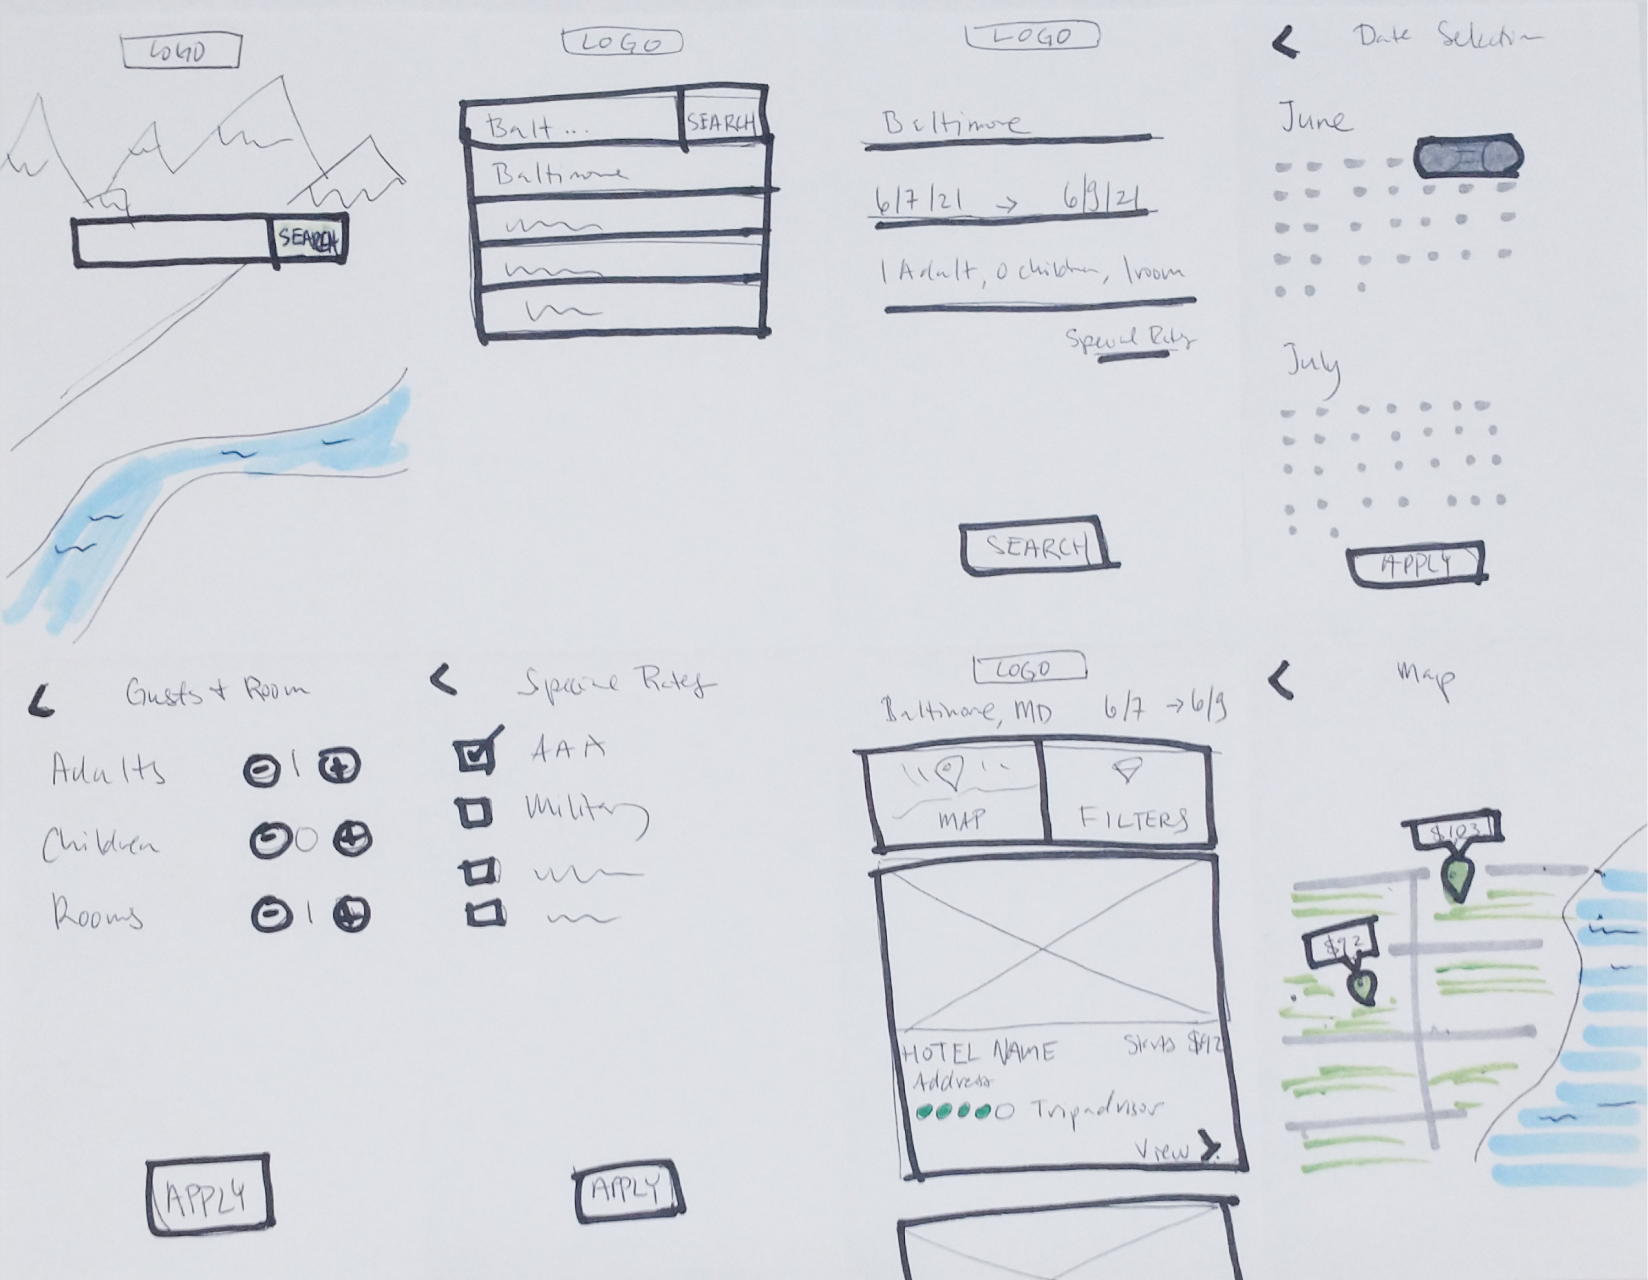 LOGO
SEARCH
LOGO
Balt... SEARCH
Baltimore
LOGO
Baltimore
6/7/21 → 6/9/21
1 Adult, 0 children, 1 room
Special Rates
SEARCH
< Date Selection
June
July
APPLY
< Guests + Room
Adults - 1 +
Children - 0 +
Rooms - 1 +
APPLY
< Special Rates
AAA
Military
APPLY
LOGO
Baltimore, MD 6/7 → 6/9
MAP FILTERS
HOTEL NAME Starts $92
Address
Tripadvisor
View >
< Map
$103
$92